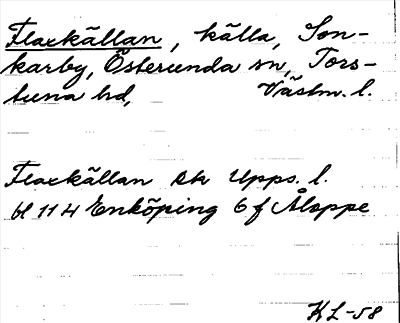 Flaxkällan, källa, Son-
karby, Österunda sn, Tors-
tuna hd, Västm. l.
Flaxkällan Ek Upps. l.
bl 11 H Enköping 6 f Åloppe
KL-58